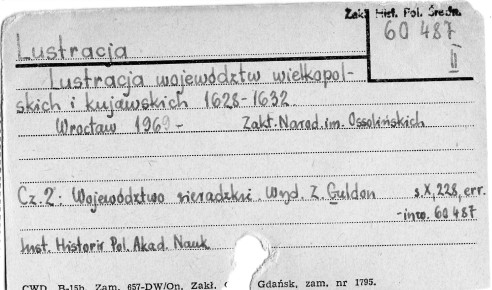 Zakł. Hist. Pol. Średn.
60 487
II
Lustracja
Lustracja województw wielkopol-
skich i kujawskich 1628-1632
Wrocław 1969- Zakł. Narod. im. Ossolińskich
Cz. 2: Województwo sieradzkie. Wyd. Z. Guldon s. X, 228, err.
-inw. 60 487
Inst. Historii Pol. Akad. Nauk
CWD, B-15h, Zam. 657-DW/On, Zakł. Gdańsk, zam. nr 1795.